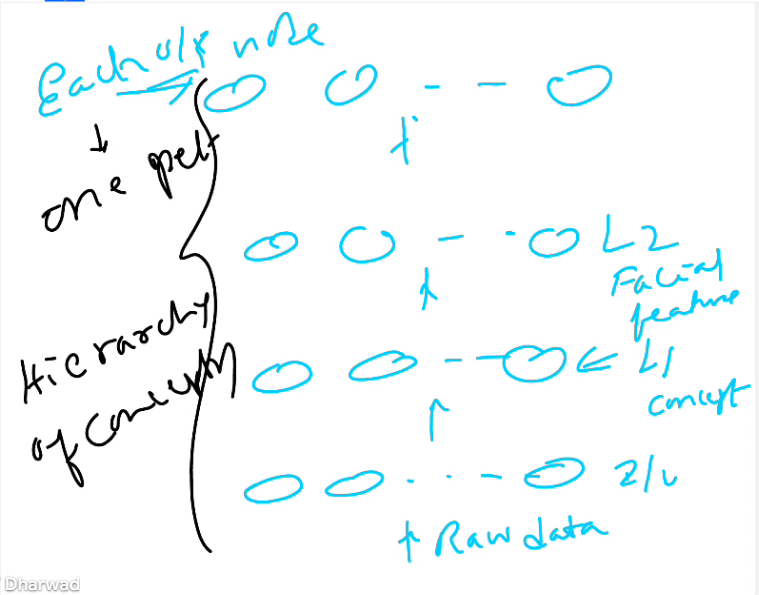 Each o/p node
one pers
L2
Facial
feature
Hierarchy
of concepts
L1
concept
I/P
Raw data
Dharwad